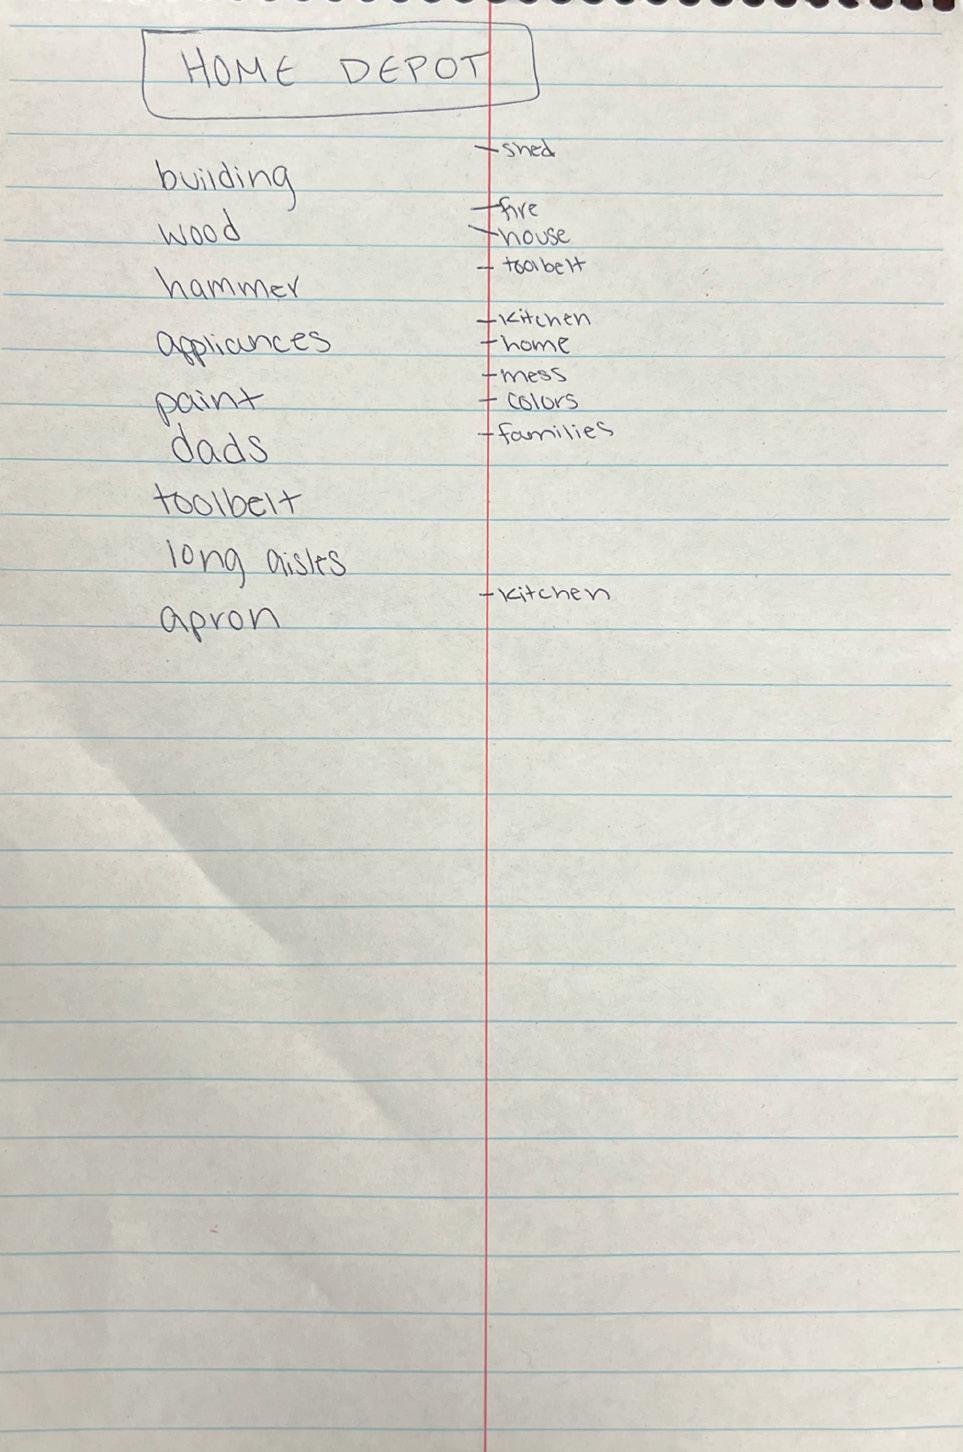 HOME DEPOT
- shed
building
- fire
wood
- house
- toolbelt
hammer
- kitchen
appliances
- home
- mess
paint
- colors
dads
- families
toolbelt
long aisles
- kitchen
apron